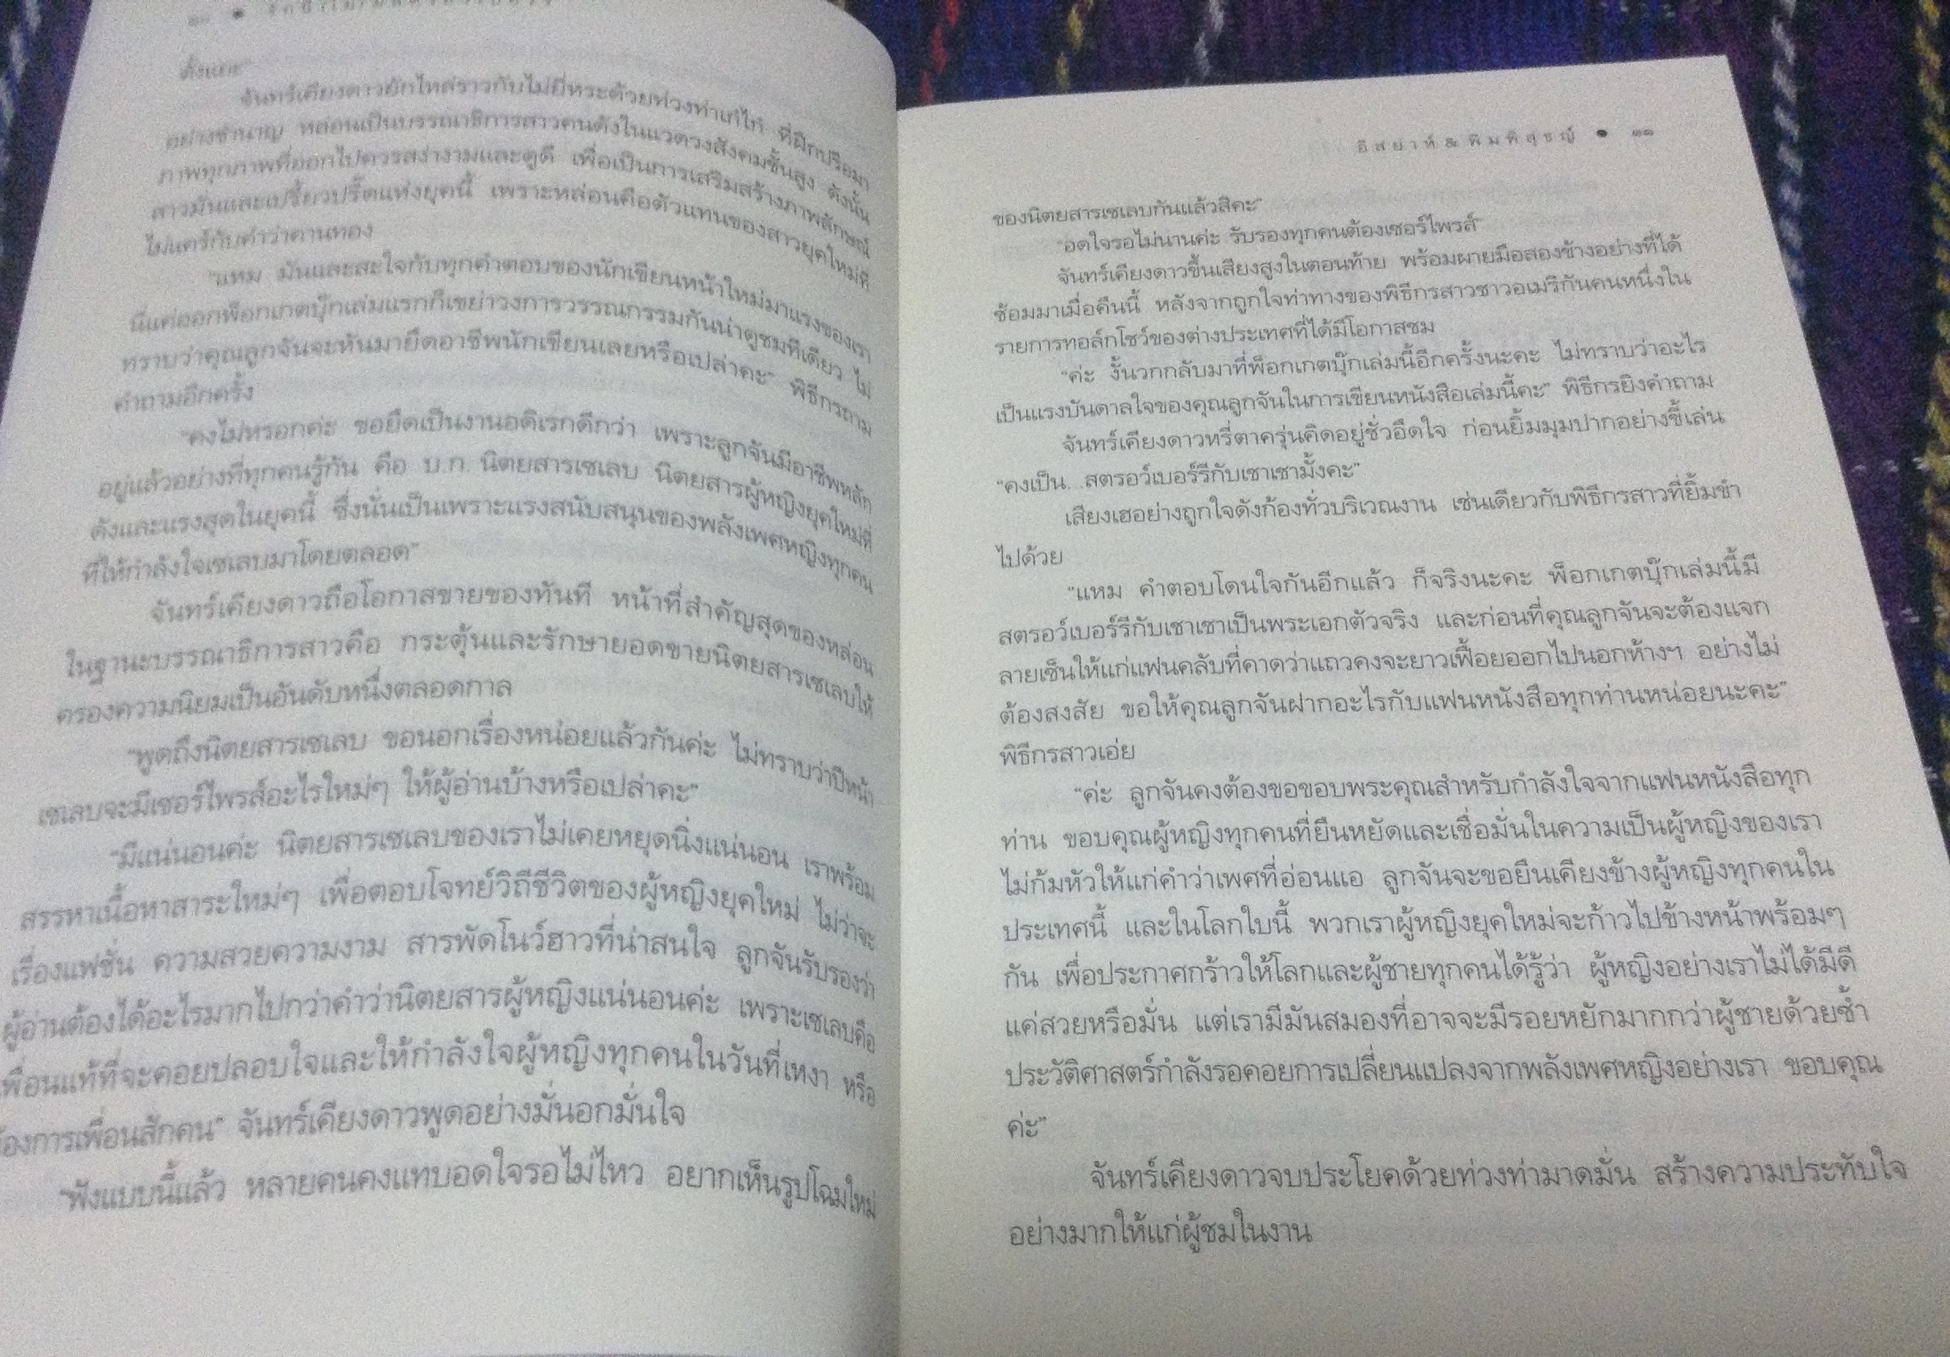 จันทร์เคียงดาวยักไหล่ราวกับไม่ยี่หระด้วยท่วงท่าเก๋ไก๋ ที่ฝึกปรือมา
อย่างชำนาญ หล่อนเป็นบรรณาธิการสาวคนดังในแวดวงสังคมชั้นสูง ดังนั้น
ภาพทุกภาพที่ออกไปควรสง่างามและดูดี เพื่อเป็นการเสริมสร้างภาพลักษณ์
สาวมั่นและเปรี้ยวปรี๊ดแห่งยุคนี้ เพราะหล่อนคือตัวแทนของสาวยุคใหม่ที่
ไม่แคร์กับคำว่าคานทอง
"แหม มันและสะใจกับทุกคำตอบของนักเขียนหน้าใหม่มาแรงของเรา
นี่แค่ออกพ็อกเกตบุ๊กเล่มแรกก็เขย่าวงการวรรณกรรมกันน่าดูชมทีเดียว ไม่
ทราบว่าคุณลูกจันจะหันมายึดอาชีพนักเขียนเลยหรือเปล่าคะ" พิธีกรถาม
คำถามอีกครั้ง
"คงไม่หรอกค่ะ ขอยึดเป็นงานอดิเรกดีกว่า เพราะลูกจันมีอาชีพหลัก
อยู่แล้วอย่างที่ทุกคนรู้กัน คือ บ.ก. นิตยสารเซเลบ นิตยสารผู้หญิงยุคใหม่ที่
ดังและแรงสุดในยุคนี้ ซึ่งนั่นเป็นเพราะแรงสนับสนุนของพลังเพศหญิงทุกคน
ที่ให้กำลังใจเซเลบมาโดยตลอด"
จันทร์เคียงดาวถือโอกาสขายของทันที หน้าที่สำคัญสุดของหล่อน
ในฐานะบรรณาธิการสาวคือ กระตุ้นและรักษายอดขายนิตยสารเซเลบให้
ครองความนิยมเป็นอันดับหนึ่งตลอดกาล
"พูดถึงนิตยสารเซเลบ ขอนอกเรื่องหน่อยแล้วกันค่ะ ไม่ทราบว่าปีหน้า
เซเลบจะมีเซอร์ไพรส์อะไรใหม่ๆ ให้ผู้อ่านบ้างหรือเปล่าคะ"
"มีแน่นอนค่ะ นิตยสารเซเลบของเราไม่เคยหยุดนิ่งแน่นอน เราพร้อม
สรรหาเนื้อหาสาระใหม่ๆ เพื่อตอบโจทย์วิถีชีวิตของผู้หญิงยุคใหม่ ไม่ว่าจะ
เรื่องแฟชั่น ความสวยความงาม สารพัดโนว์ฮาวที่น่าสนใจ ลูกจันรับรองว่า
ผู้อ่านต้องได้อะไรมากไปกว่าคำว่านิตยสารผู้หญิงแน่นอนค่ะ เพราะเซเลบคือ
เพื่อนแท้ที่จะคอยปลอบใจและให้กำลังใจผู้หญิงทุกคนในวันที่เหงา หรือ
ต้องการเพื่อนสักคน" จันทร์เคียงดาวพูดอย่างมั่นอกมั่นใจ
"ฟังแบบนี้แล้ว หลายคนคงแทบอดใจรอไม่ไหว อยากเห็นรูปโฉมใหม่
อิสย่าห์ & พิมพิสุธญ์ • ๑๑
ของนิตยสารเซเลบกันแล้วสิคะ"
"อดใจรอไม่นานค่ะ รับรองทุกคนต้องเซอร์ไพรส์"
จันทร์เคียงดาวขึ้นเสียงสูงในตอนท้าย พร้อมผายมือสองข้างอย่างที่ได้
ซ้อมมาเมื่อคืนนี้ หลังจากถูกใจท่าทางของพิธีกรสาวชาวอเมริกันคนหนึ่งใน
รายการทอล์กโชว์ของต่างประเทศที่ได้มีโอกาสชม
"ค่ะ งั้นวกกลับมาที่พ็อกเกตบุ๊กเล่มนี้อีกครั้งนะคะ ไม่ทราบว่าอะไร
เป็นแรงบันดาลใจของคุณลูกจันในการเขียนหนังสือเล่มนี้คะ" พิธีกรยิงคำถาม
จันทร์เคียงดาวหรี่ตาครุ่นคิดอยู่ชั่วอึดใจ ก่อนยิ้มมุมปากอย่างขี้เล่น
"คงเป็น...สตรอว์เบอร์รีกับเชาเชามั้งคะ"
เสียงเฮอย่างถูกใจดังก้องทั่วบริเวณงาน เช่นเดียวกับพิธีกรสาวที่ยิ้มขำ
ไปด้วย
"แหม คำตอบโดนใจกันอีกแล้ว ก็จริงนะคะ พ็อกเกตบุ๊กเล่มนี้มี
สตรอว์เบอร์รีกับเชาเชาเป็นพระเอกตัวจริง และก่อนที่คุณลูกจันจะต้องแจก
ลายเซ็นให้แก่แฟนคลับที่คาดว่าแถวคงจะยาวเฟื้อยออกไปนอกห้างฯ อย่างไม่
ต้องสงสัย ขอให้คุณลูกจันฝากอะไรกับแฟนหนังสือทุกท่านหน่อยนะคะ"
พิธีกรสาวเอ่ย
"ค่ะ ลูกจันคงต้องขอขอบพระคุณสำหรับกำลังใจจากแฟนหนังสือทุก
ท่าน ขอบคุณผู้หญิงทุกคนที่ยืนหยัดและเชื่อมั่นในความเป็นผู้หญิงของเรา
ไม่ก้มหัวให้แก่คำว่าเพศที่อ่อนแอ ลูกจันจะขอยืนเคียงข้างผู้หญิงทุกคนใน
ประเทศนี้ และในโลกใบนี้ พวกเราผู้หญิงยุคใหม่จะก้าวไปข้างหน้าพร้อมๆ
กัน เพื่อประกาศกร้าวให้โลกและผู้ชายทุกคนได้รู้ว่า ผู้หญิงอย่างเราไม่ได้มีดี
แค่สวยหรือมั่น แต่เรามีมันสมองที่อาจจะมีรอยหยักมากกว่าผู้ชายด้วยซ้ำ
ประวัติศาสตร์กำลังรอคอยการเปลี่ยนแปลงจากพลังเพศหญิงอย่างเรา ขอบคุณ
ค่ะ"
จันทร์เคียงดาวจบประโยคด้วยท่วงท่ามาดมั่น สร้างความประทับใจ
อย่างมากให้แก่ผู้ชมในงาน